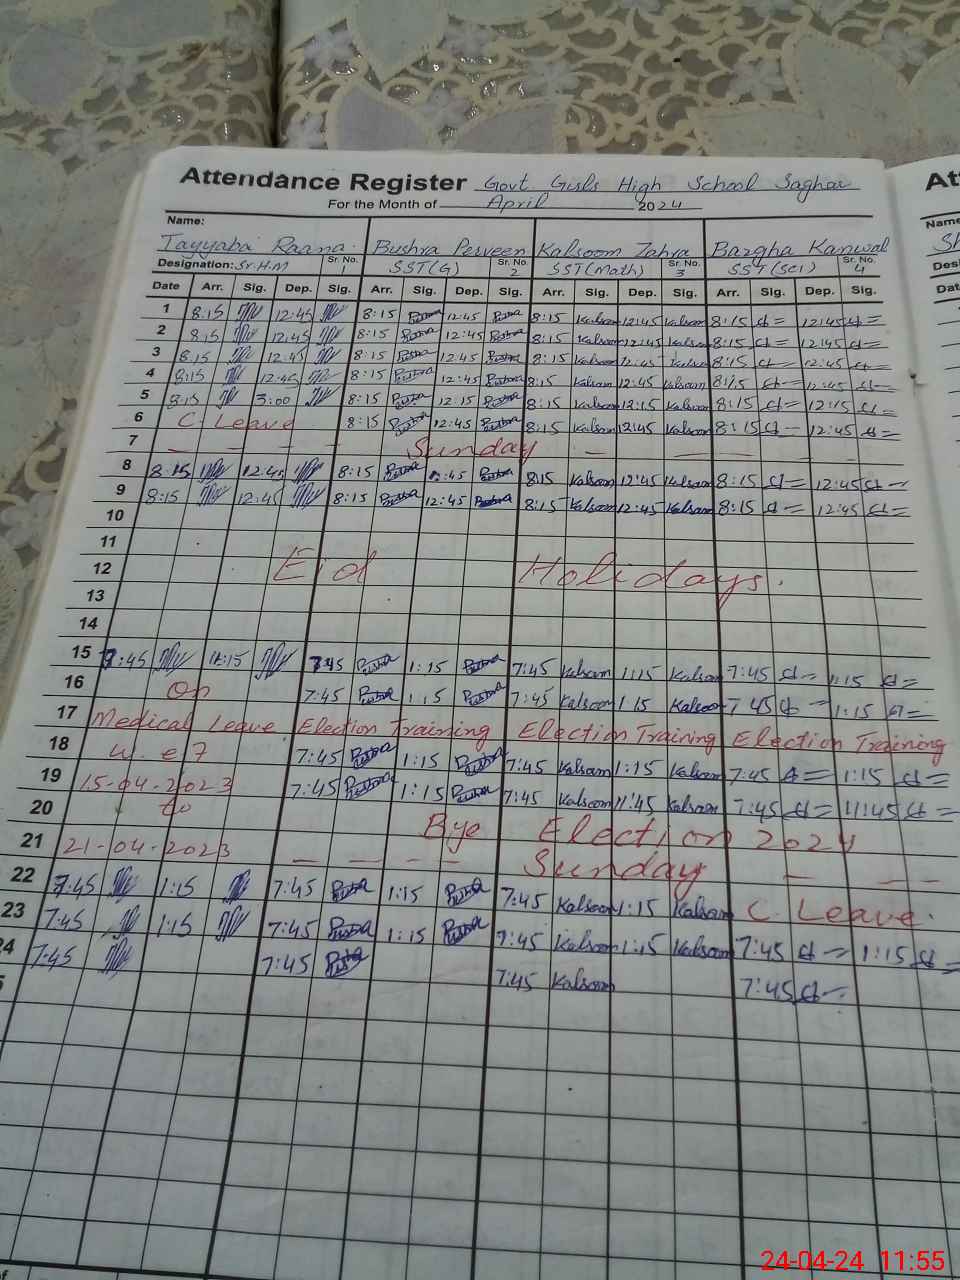 Attendance Register Govt Girls High School Saghar
For the Month of April 2024
Name:
Tayyaba Raana. Bushra Perveen Kalsoom Zahra Bazgha Kanwal
Designation: Sr.H.M Sr. No. 1 SST(G) Sr. No. 2 SST(Math) Sr. No. 3 SST(Sci) Sr. No. 4
Date Arr. Sig. Dep. Sig. Arr. Sig. Dep. Sig. Arr. Sig. Dep. Sig. Arr. Sig. Dep. Sig.
1 8:15 12:45 8:15 Bushra 12:45 Bushra 8:15 Kalsoom 12:45 Kalsoom 8:15 12:45
2 8:15 12:45 8:15 Bushra 12:45 Bushra 8:15 Kalsoom 12:45 Kalsoom 8:15 12:45
3 8:15 12:45 8:15 Bushra 12:45 Bushra 8:15 Kalsoom 12:45 Kalsoom 8:15 12:45
4 8:15 12:45 8:15 Bushra 12:45 Bushra 8:15 Kalsoom 12:45 Kalsoom 8:15 12:45
5 8:15 3:00 8:15 Bushra 12:15 Bushra 8:15 Kalsoom 12:15 Kalsoom 8:15 12:15
6 C. Leave 8:15 Bushra 12:45 Bushra 8:15 Kalsoom 12:45 Kalsoom 8:15 12:45
7 — — — — Sunday — — —
8 8:15 12:45 8:15 Bushra 12:45 Bushra 8:15 Kalsoom 12:45 Kalsoom 8:15 12:45
9 8:15 12:45 8:15 Bushra 12:45 Bushra 8:15 Kalsoom 12:45 Kalsoom 8:15 12:45
10
11
12 Eid Holidays.
13
14
15 7:45 7:45 Bushra 1:15 Bushra 7:45 Kalsoom 1:15 Kalsoom 7:45 1:15
16 On 7:45 Bushra 1:15 Bushra 7:45 Kalsoom 1:15 Kalsoom 7:45 1:15
17 Medical Leave Election Training Election Training Election Training
18 w.e.f 7:45 Bushra 1:15 Bushra 7:45 Kalsoom 1:15 Kalsoom 7:45 1:15
19 15-04-2023 7:45 Bushra 1:15 Bushra 7:45 Kalsoom 11:45 Kalsoom 7:45 11:45
20 to Bye Election 2024
21 21-04-2023 — — — — Sunday — — —
22 7:45 1:15 7:45 Bushra 1:15 Bushra 7:45 Kalsoom 1:15 Kalsoom C. Leave.
23 7:45 1:15 7:45 Bushra 1:15 Bushra 7:45 Kalsoom 1:15 Kalsoom 7:45 1:15
24 7:45 7:45 Bushra 7:45 Kalsoom 7:45
24-04-24 11:55